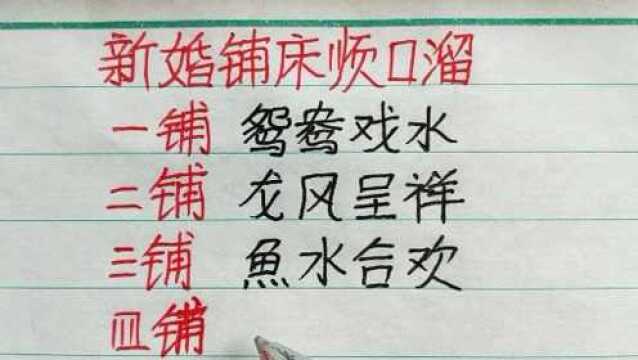 新婚铺床顺口溜
一铺 鸳鸯戏水
二铺 龙风呈祥
三铺 魚水合欢
四铺